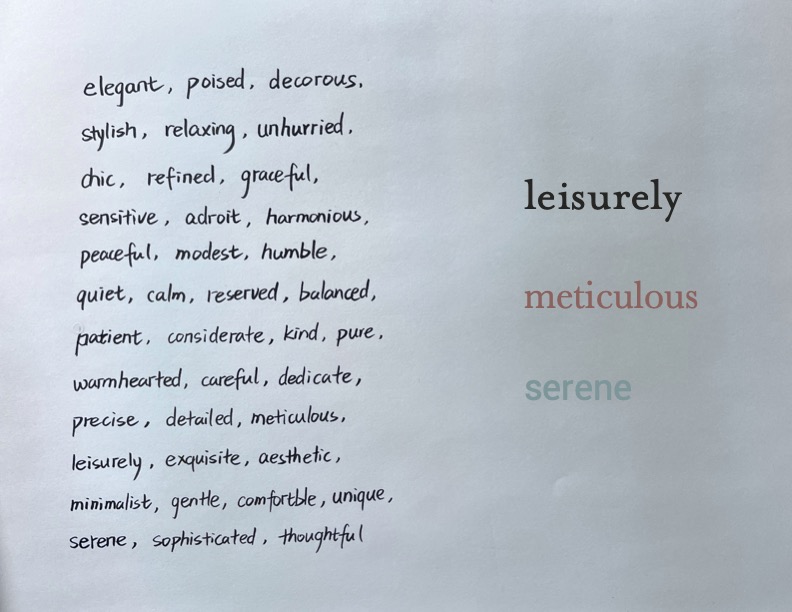 elegant, poised, decorous,
stylish, relaxing, unhurried,
chic, refined, graceful,
sensitive, adroit, harmonious,
peaceful, modest, humble,
quiet, calm, reserved, balanced,
patient, considerate, kind, pure,
warmhearted, careful, dedicate,
precise, detailed, meticulous,
leisurely, exquisite, aesthetic,
minimalist, gentle, comfortble, unique,
serene, sophisticated, thoughtful
leisurely
meticulous
serene